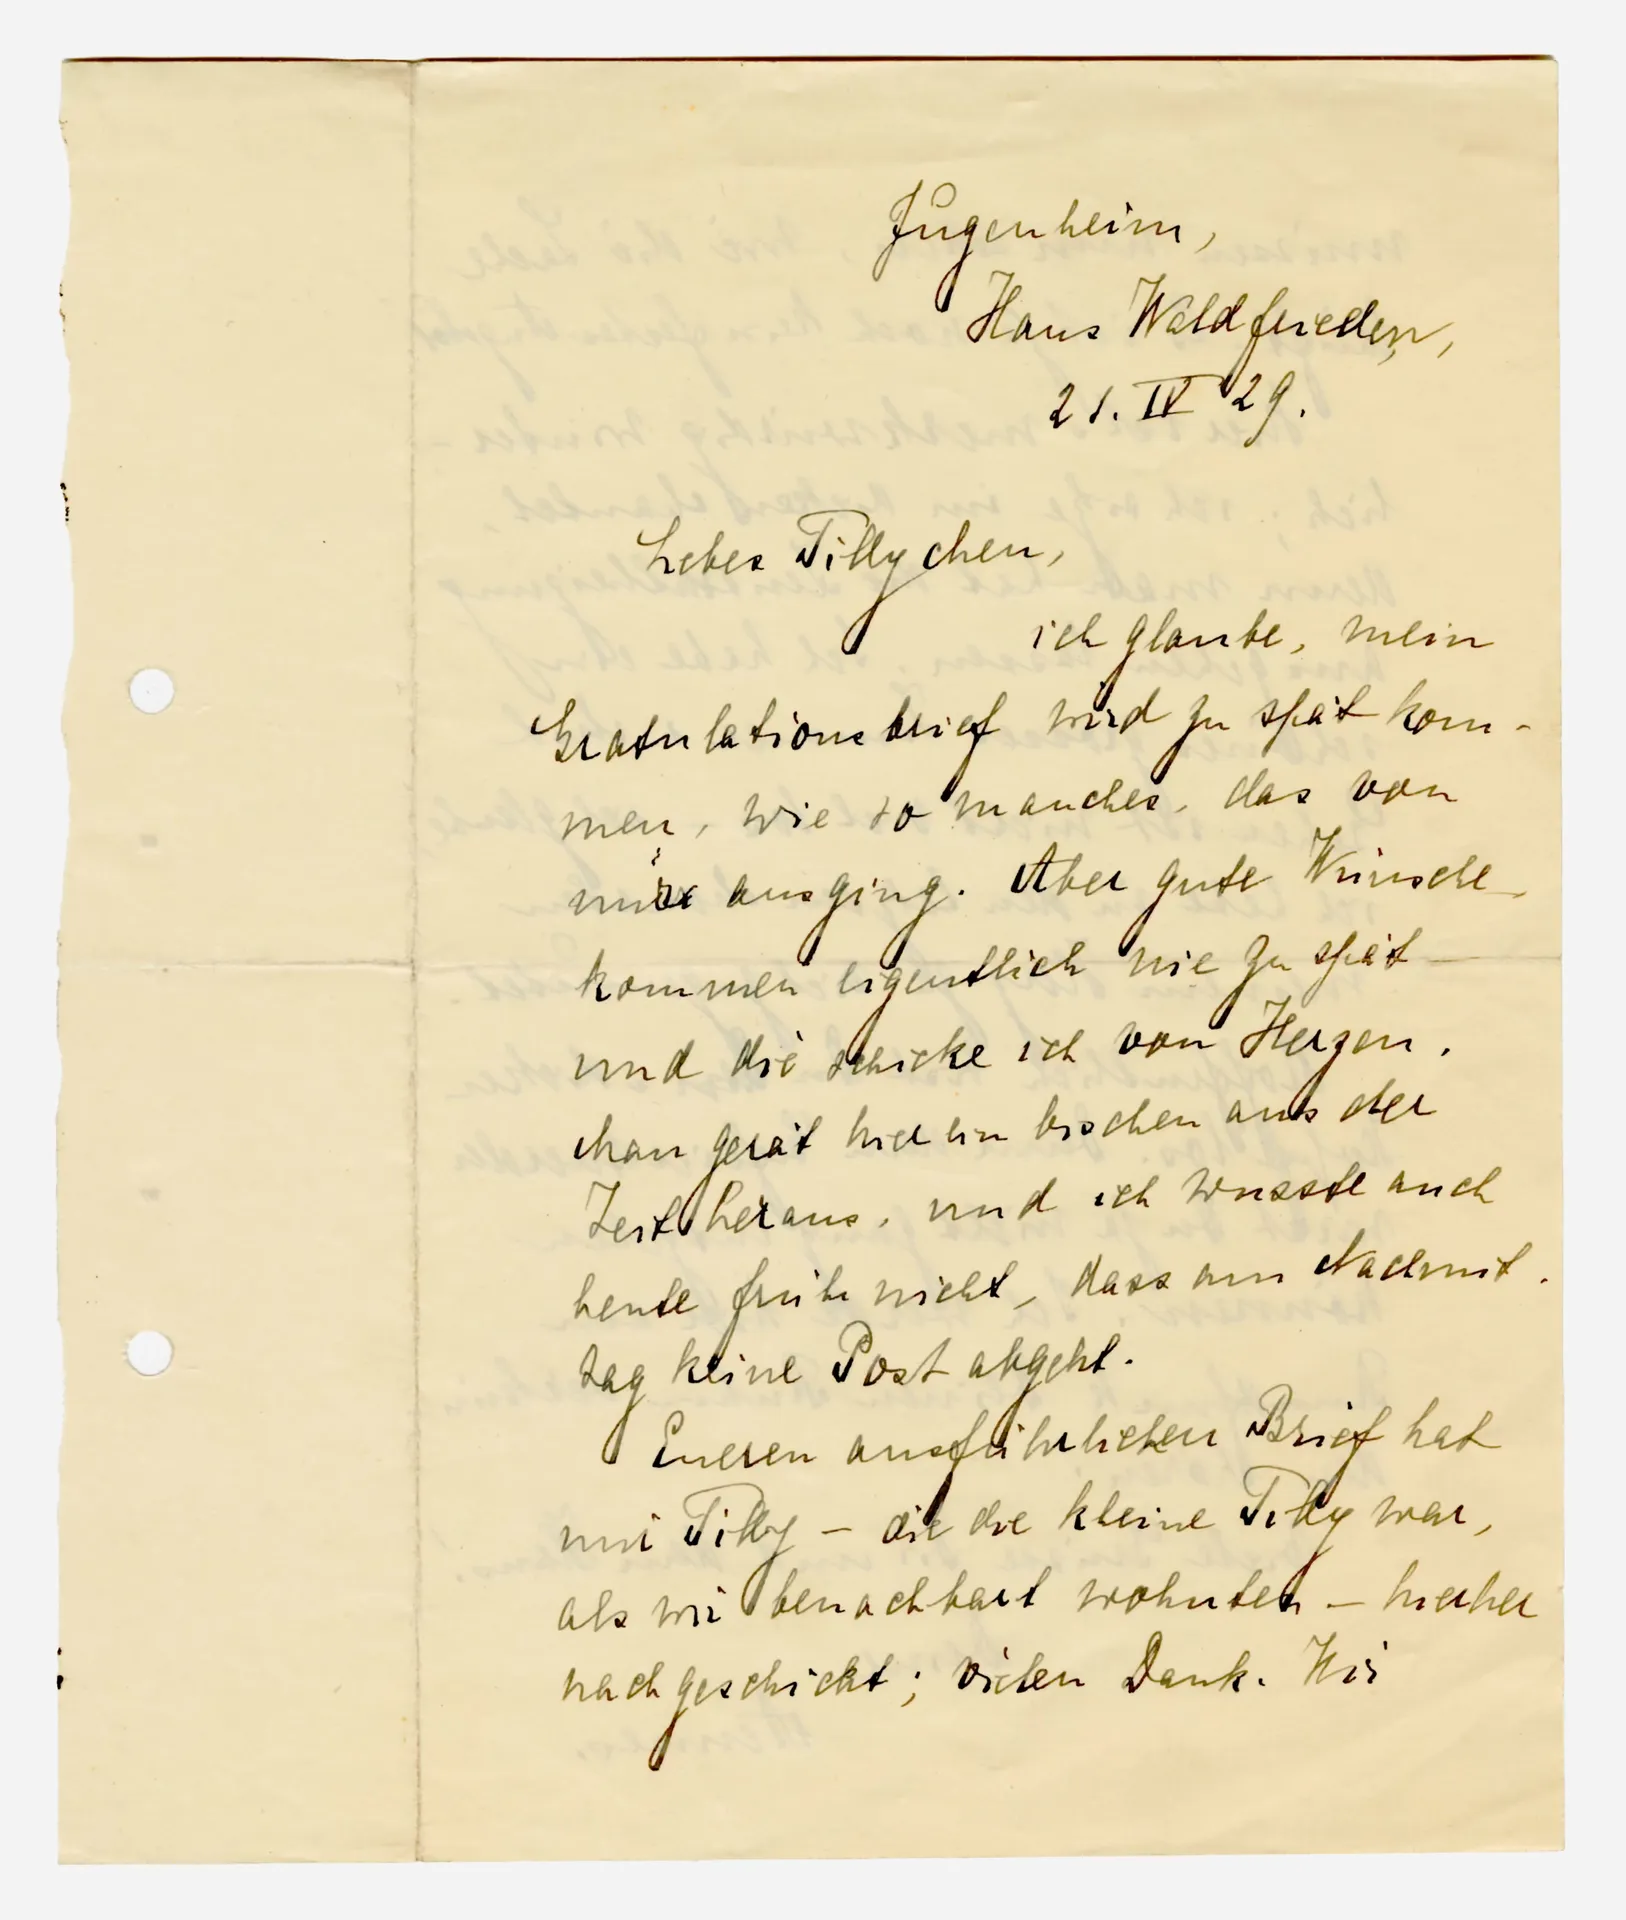 Jugenheim,
Haus Waldfrieden,
21. IV 29.
Liebes Tillychen,
ich glaube, mein
Gratulationsbrief wird zu spät kom-
men, wie so manches, das von
mir ausging. Aber gute Wünsche
kommen eigentlich nie zu spät –
und die schicke ich von Herzen.
Man gerät hier ein bischen aus der
Zeit heraus, und ich wusste auch
heute früh nicht, dass am Nachmit-
tag keine Post abgeht.
Eueren ausführlichen Brief hat
mir Tilly – die die kleine Tilly war,
als wir benachbart wohnten – hierher
nachgeschickt; vielen Dank. Wir